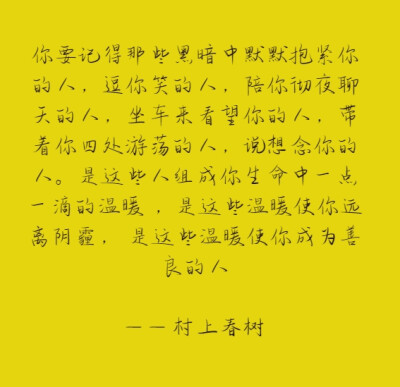 你要记得那些黑暗中默默抱紧你
的人，逗你笑的人，陪你彻夜聊
天的人，坐车来看望你的人，带
着你四处游荡的人，说想念你的
人。是这些人组成你生命中一点
一滴的温暖，是这些温暖使你远
离阴霾，是这些温暖使你成为善
良的人
——村上春树